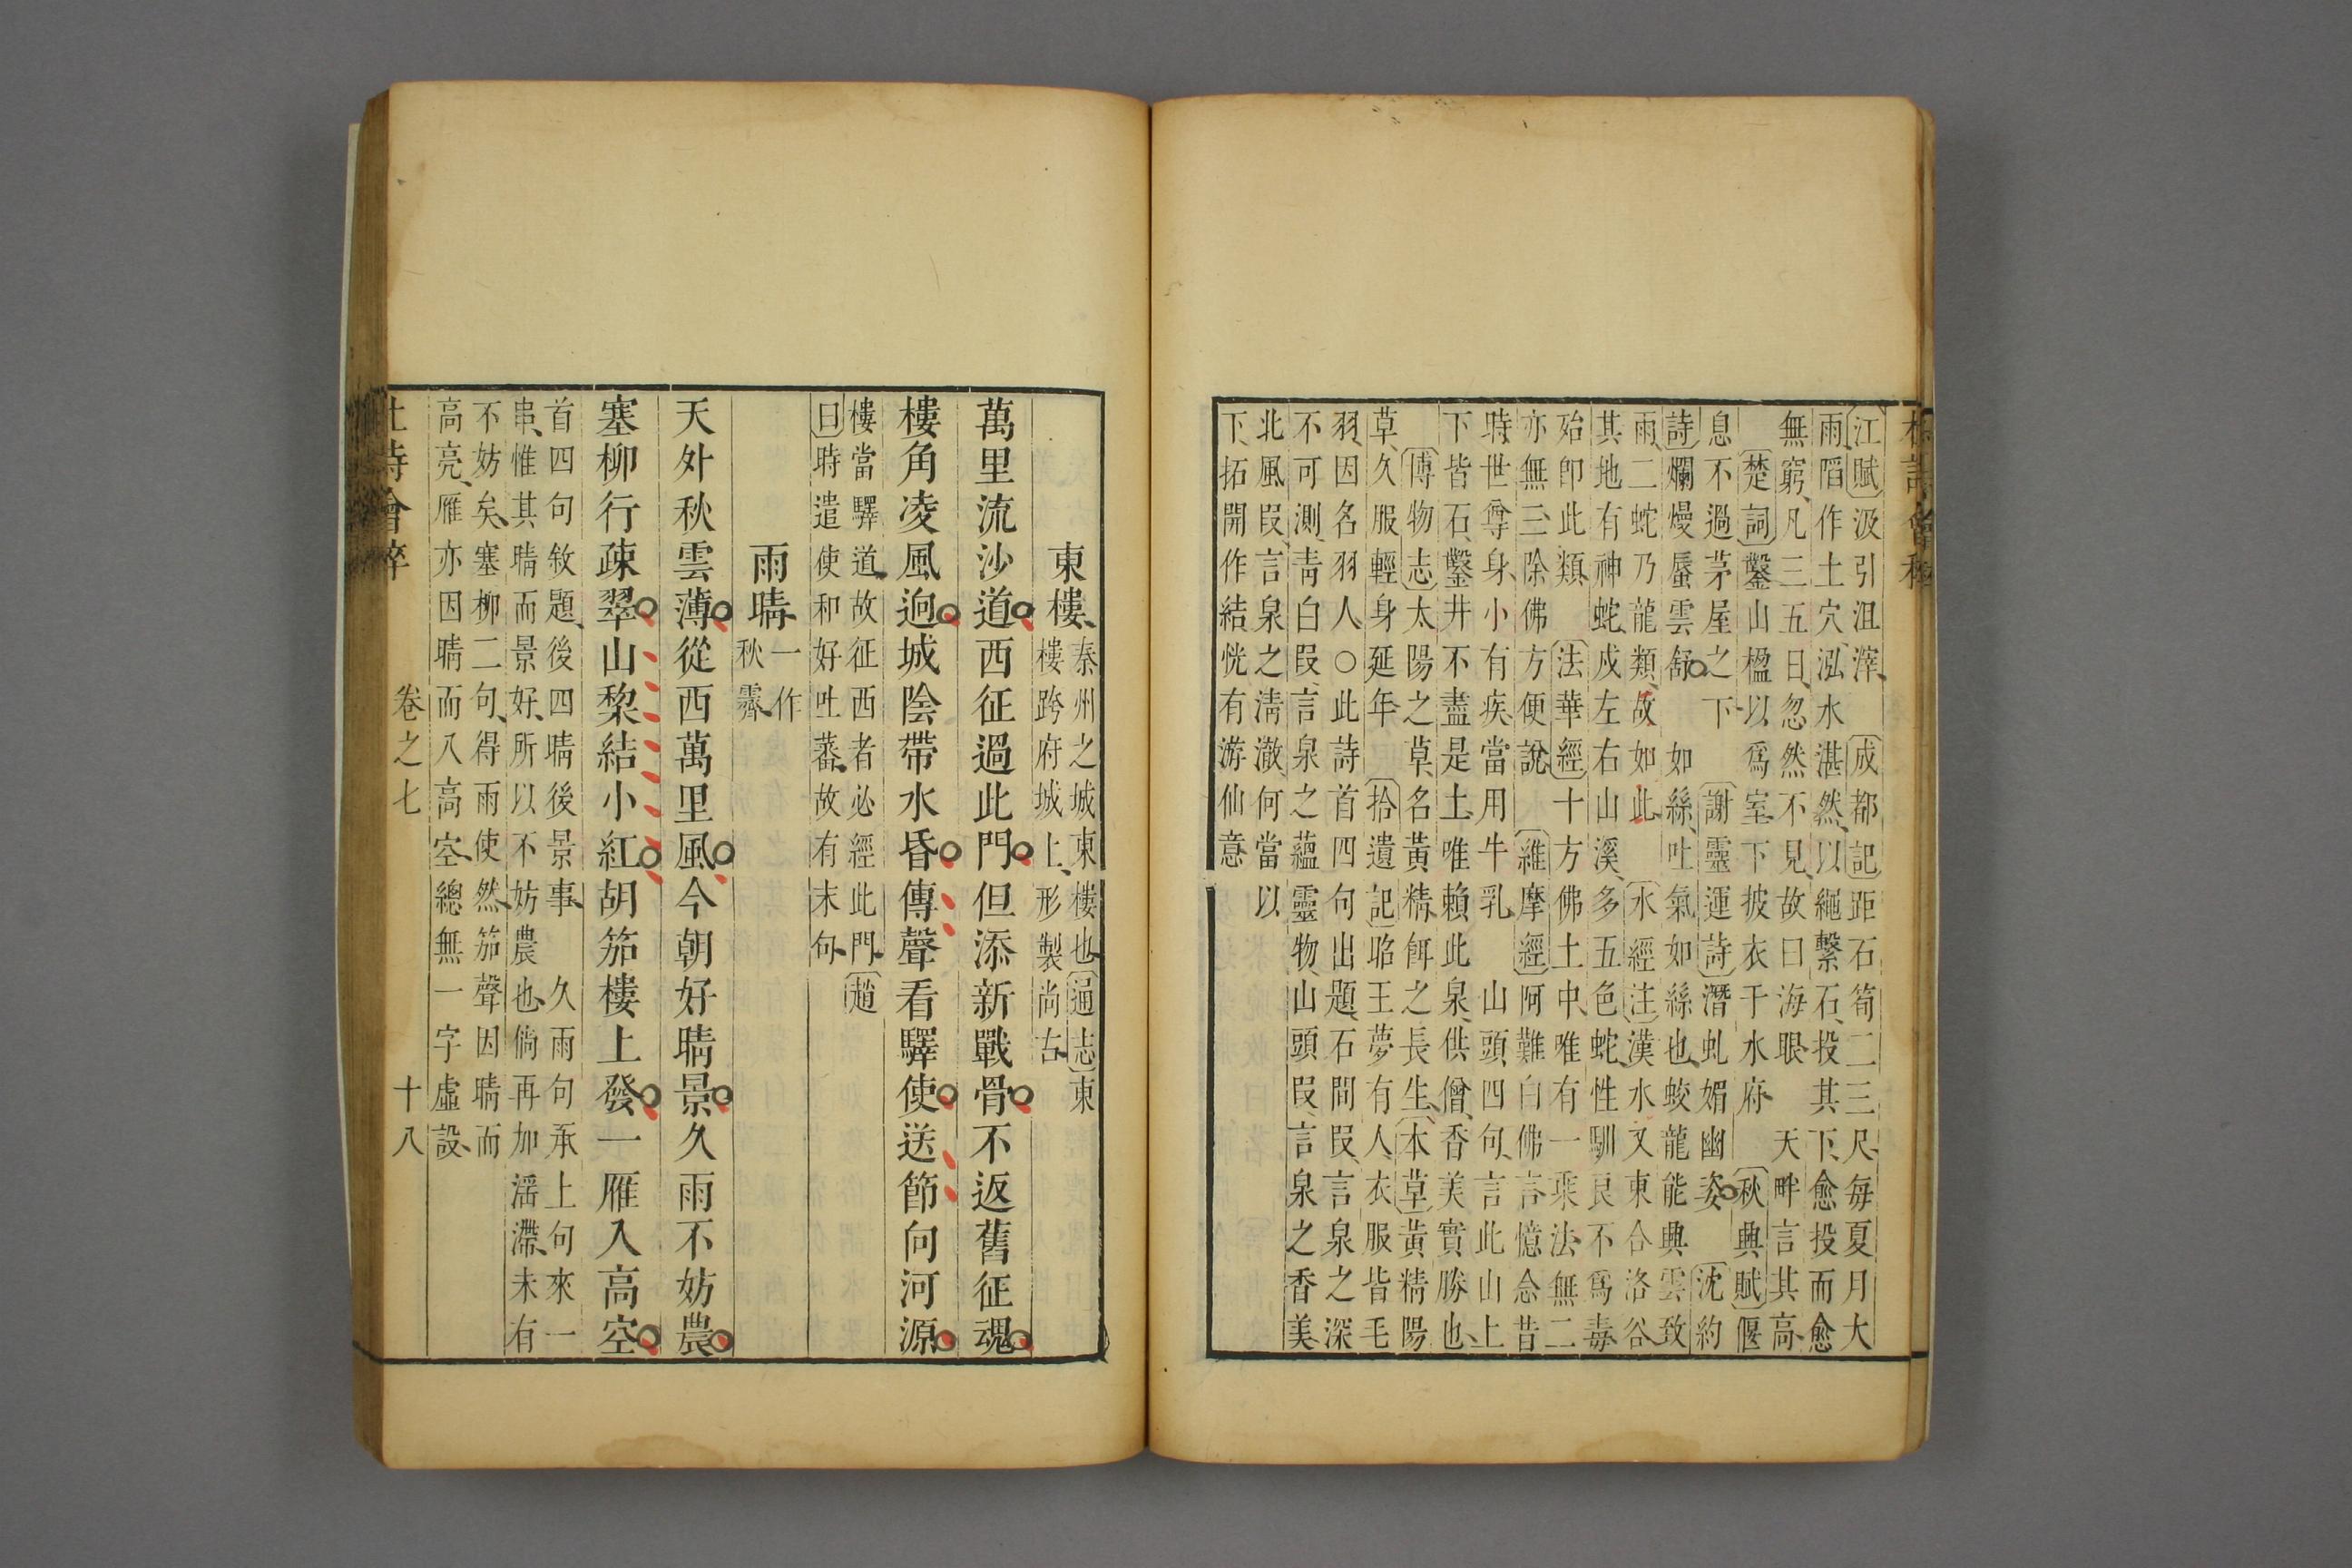 杜詩會稡
江賦汲引沮滓、成都記距石筍二三尺、每夏月大
雨、䧟作土穴、泓水湛然、以繩繫石、投其下、愈投而愈
無窮、凡三五日、忽然不見、故曰海眼　天畔言其高、
楚詞鑿山楹以爲室、下披衣于水府　秋興賦偃
息不過茅屋之下　謝靈運詩潛虬媚幽姿　沈約
詩爛熳蜃雲舒　如絲、吐氣如絲也、蛟龍能興雲致
雨、二蛇乃龍類、故如此　水經注漢水又東合洛谷
其地有神蛇、戍左右山溪、多五色蛇、性馴良不爲毒
殆卽此類　法華經十方佛土中、唯有一乘法、無二
亦無三、除佛方便說　維摩經阿難白佛言憶念昔
時、世尊身、小有疾、當用牛乳　山頭四句、言此山上
下皆石、鑿井不盡是土、唯賴此泉、供僧、香美實勝也
博物志太陽之草、名黃精、餌之長生、本草黃精陽
草、久服輕身延年　拾遺記昭王夢有人、衣服皆毛
羽、因名羽人〇此詩首四句出題、石間叚、言泉之深
不可測、青白叚、言泉之蘊靈物、山頭叚、言泉之香美
北風叚、言泉之清澈、何當以
下、拓開作結、恍有游仙意
東樓、秦州之城東樓也、通志東
樓跨府城上、形製尚古、
萬里流沙道西征過此門但添新戰骨不返舊征魂
樓角凌風迥城陰帶水昏傳聲看驛使送節向河源
樓當驛道、故征西者必經此門、趙
曰時遣使和好吐蕃、故有末句、
雨晴、一作
秋霽、
天外秋雲薄從西萬里風今朝好晴景久雨不妨農
塞柳行疎翠山棃結小紅胡笳樓上發一雁入高空
首四句敘題、後四晴後景事、　久雨句承上句來一
串、惟其晴而景好、所以不妨農也、倘再加滛滯、未有
不妨矣、塞柳二句、得雨使然、笳聲因晴而
高亮、雁亦因晴而入高空、總無一字虛設、
卷之七　十八